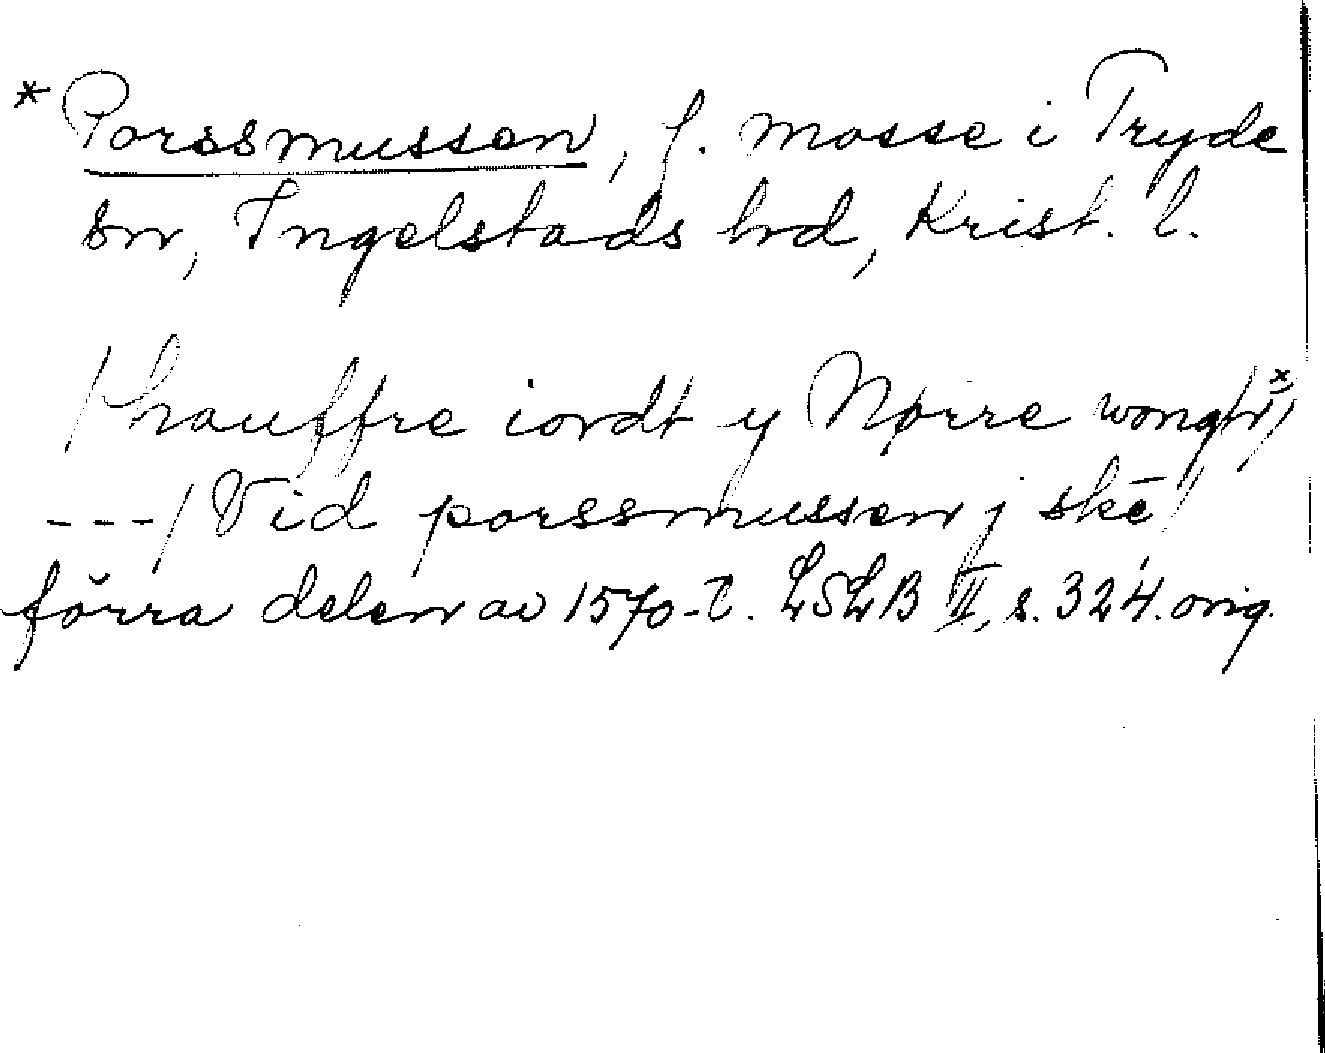 * Porssmussen, f. mosse i Tryde
sn, Ingelstads hrd, Krist. l.
/hauffre iordt y Nørre wong/
---/ Vid porssmussen j skē/
förra delen av 1570-t. LSLB II, s. 324. orig.